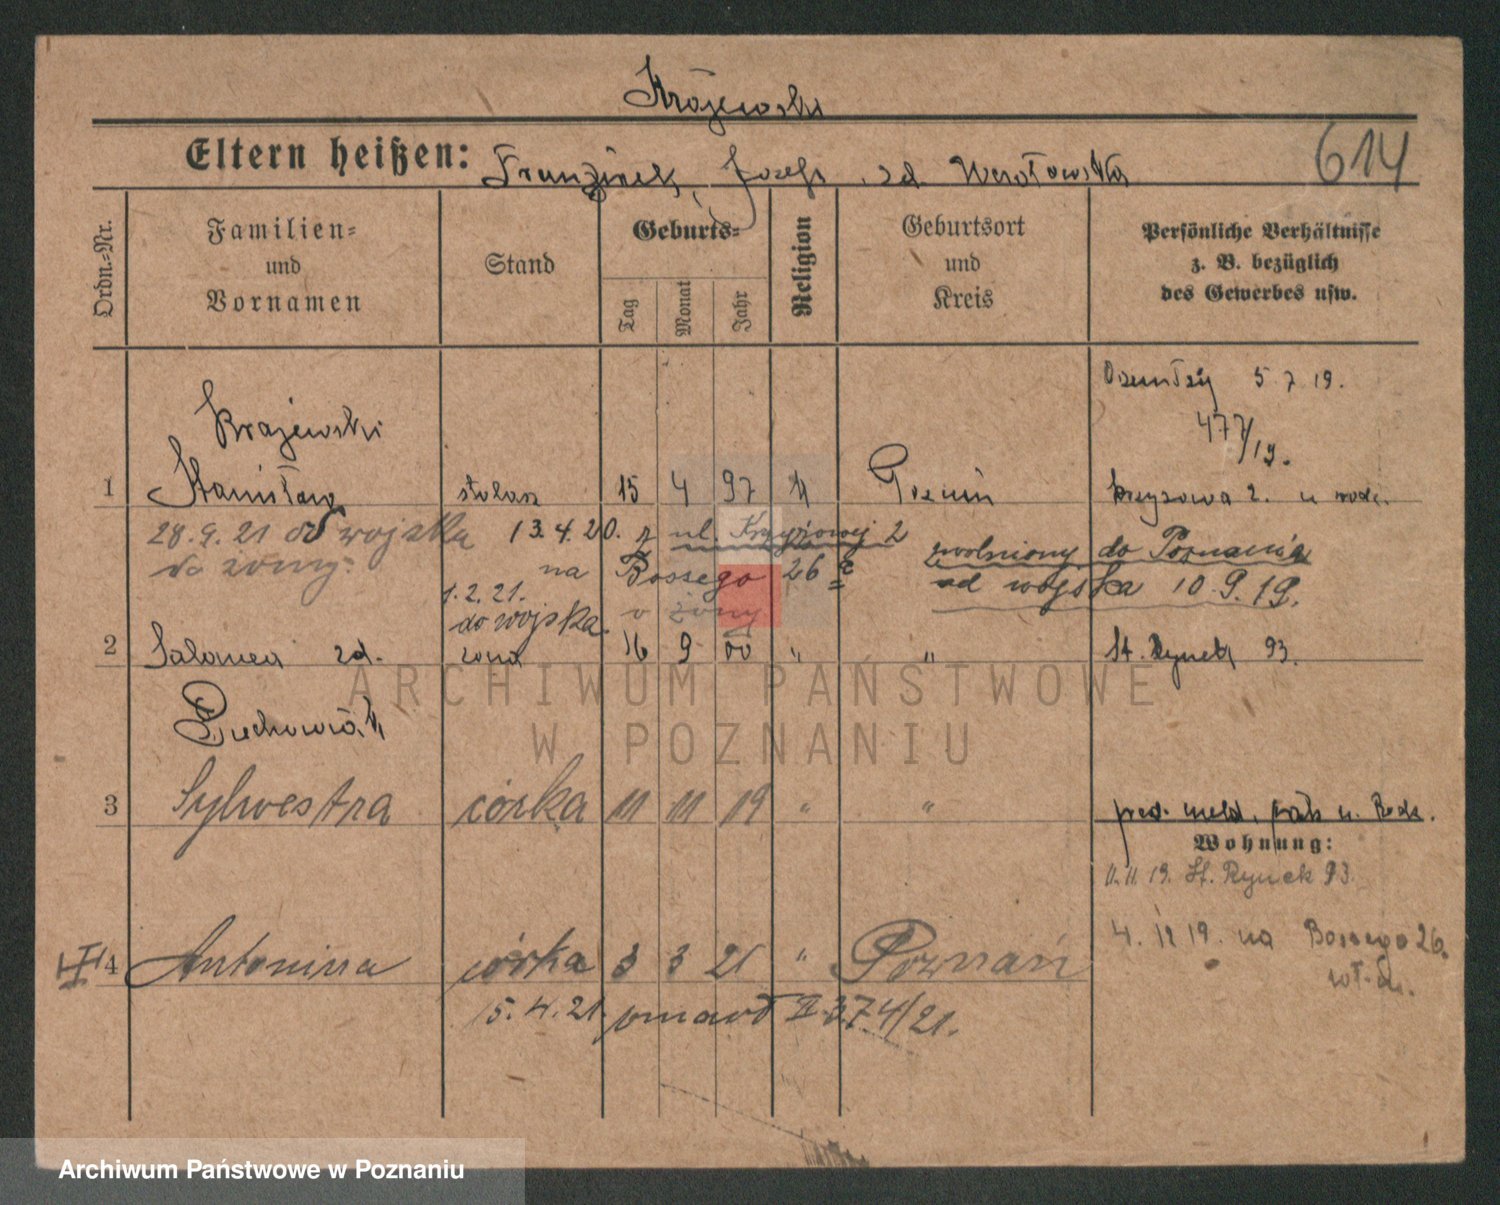 Krajewski
Eltern heißen: Franciszek, Józefa zd.
614
Ordn.=Nr.
Familien=
und
Vornamen
Stand
Geburts=
Tag
Monat
Jahr
Religion
Geburtsort
und
Kreis
Persönliche Verhältnisse
z. B. bezüglich
des Gewerbes usw.
5 7 19.
477/19.
Krajewski
1 Stanisław stolarz 15 4 97 k Poznań
Krzyżowa 2. u rodz.
28.9.21 od wojska
do żony.
13.4.20. z ul. Krzyżowej 2
na Bossego 26
zwolniony do Poznania
od wojska 10.9.19.
1.2.21.
do wojska.
o żony
2 Salomea zd. żona 16 9 00 " " St. Rynek 93.
Piechowiak
3 Sylwestra córka 11 11 19 " "
pod. meld. u. Rodz.
Wohnung:
11.11.19. St. Rynek 93.
4. 12 19. na Bossego 26.
4 Antonina córka 3 3 21 " Poznań
15.4.21. zmarł II 374/21.
ARCHIWUM PAŃSTWOWE
W POZNANIU
Archiwum Państwowe w Poznaniu